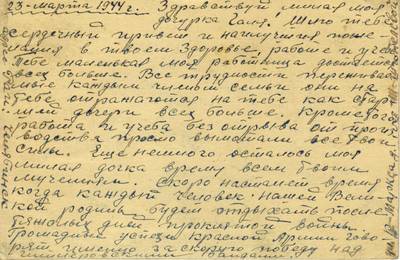 23-марта 1944 г. Здравствуй милая моя
дочурка Галя! Шлю тебе
сердечный привет и наилучшия поже-
лания в твоем здоровье, работе и учебе.
Тебе маленькая моя работница достается
всех больше. Все трудности переживае-
мые каждым членом семьи они на
тебе отражаются на тебе как стар-
шей дочери всех больше. Кроме того
работа и учеба без отрыва от произ-
водства просто вымотали все твои
силы. Еще немного осталось моя
милая дочка время всем твоим
мучениям. Скоро настанет время
когда каждый человек нашей Вели-
кой родины будет отдыхать после
тяжолых дней проклятой войны.
Громадныя успехи Красной Армии гово-
рят именно за скорую победу над
гитлеровскими бандами.